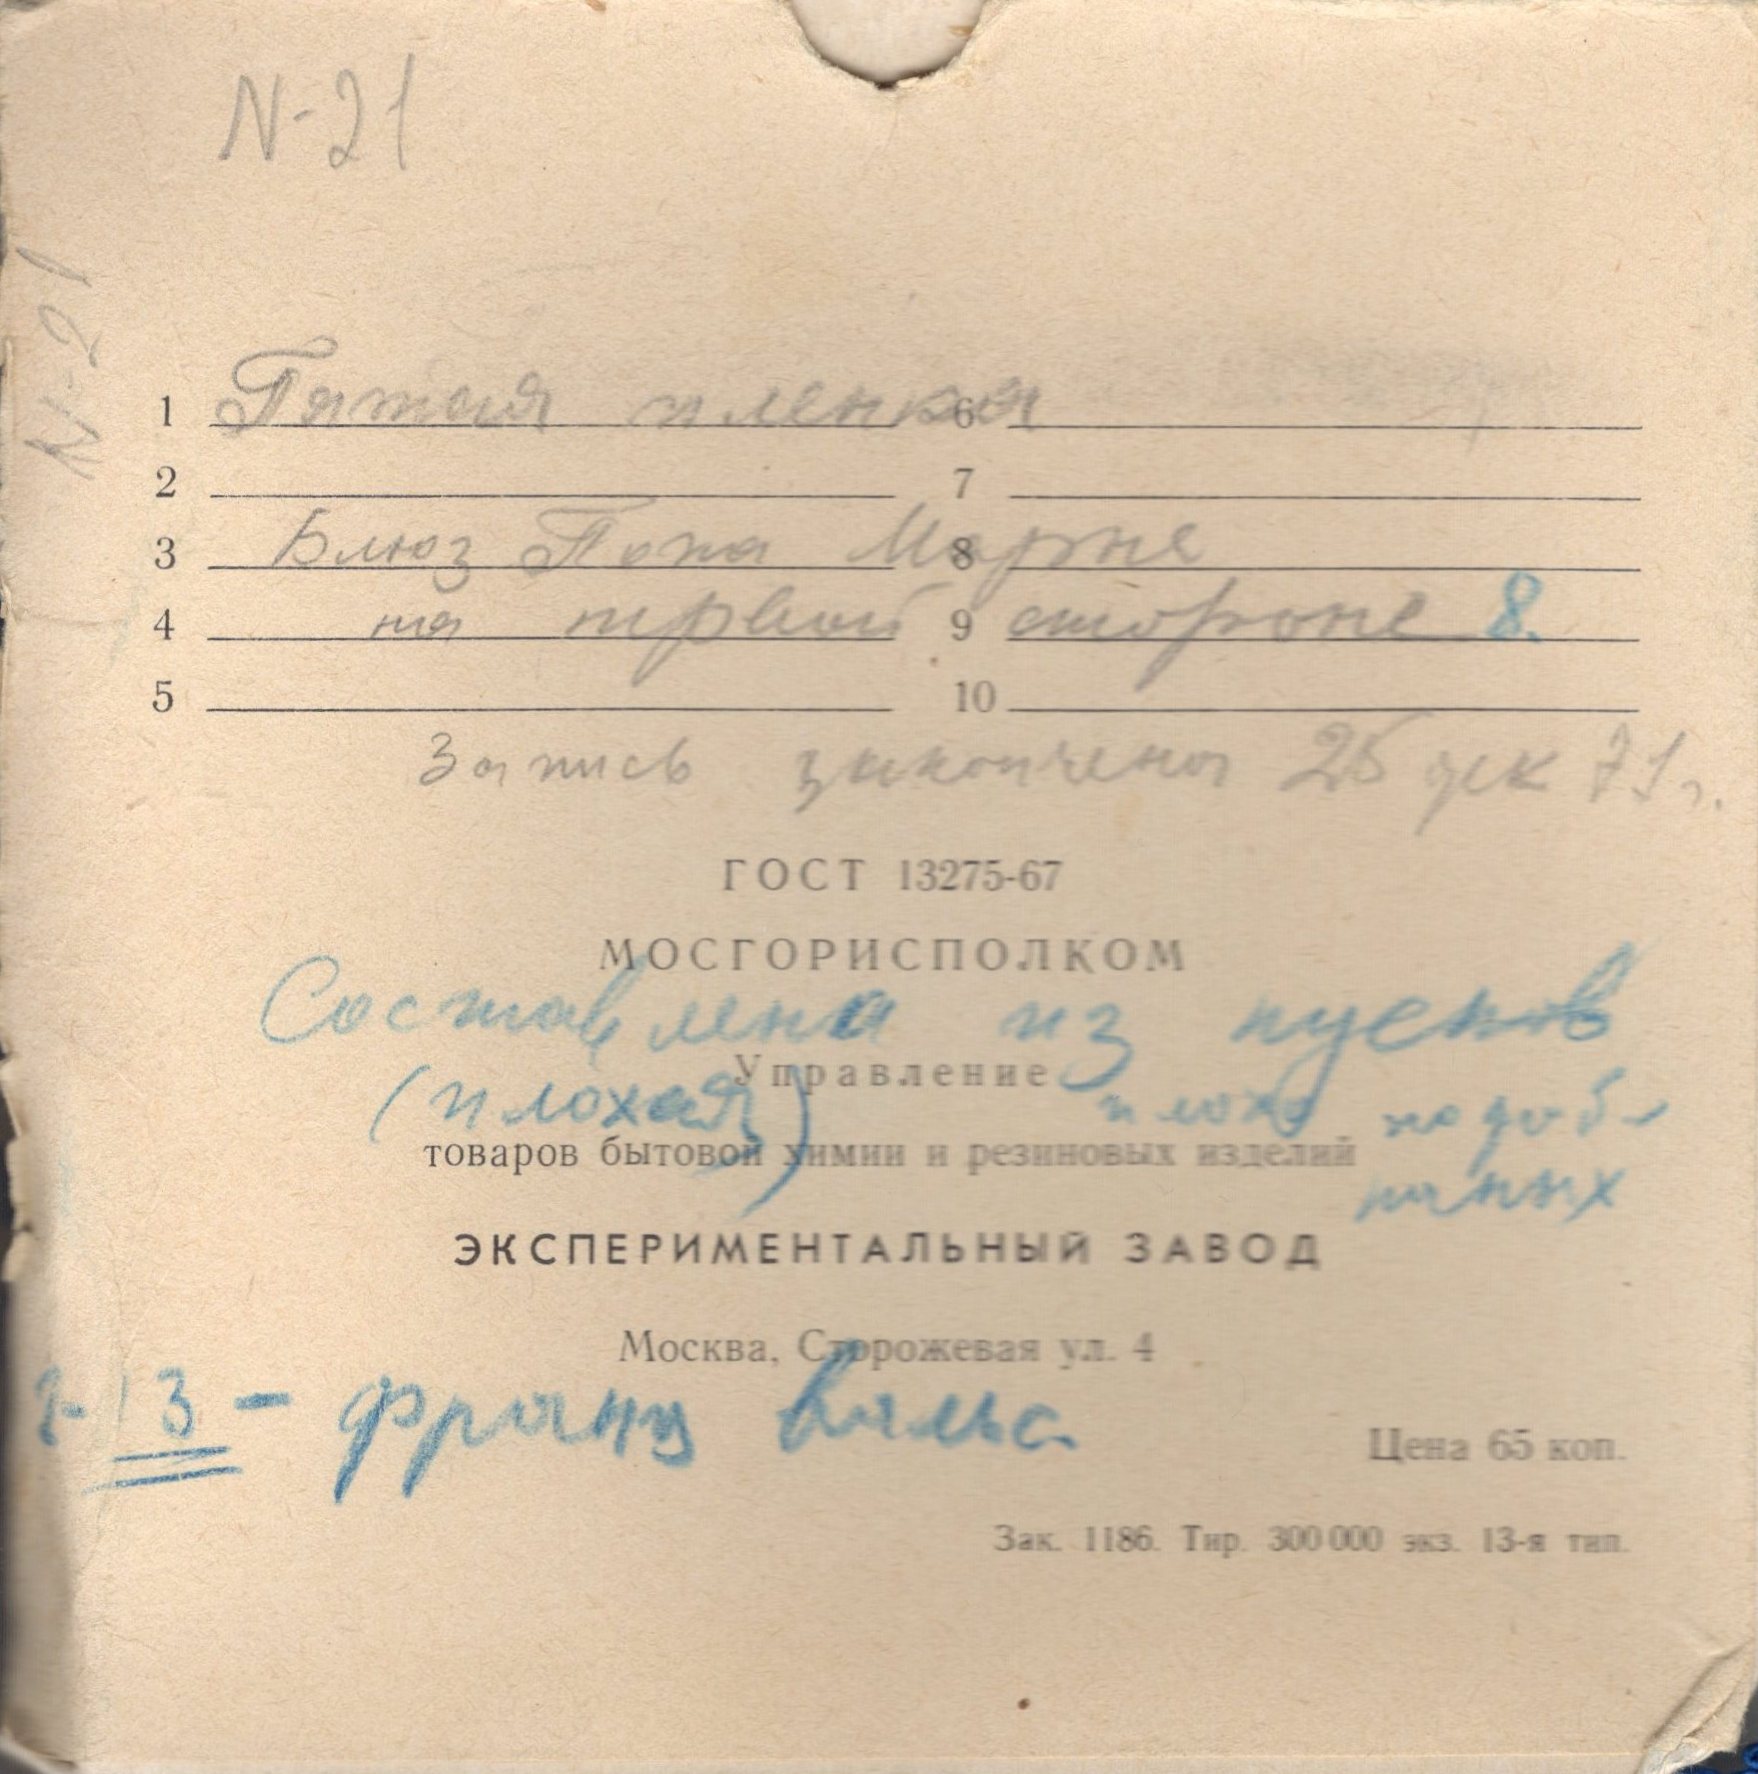 N-21
N-21
1 Пятая пленка 6
2 7
3 Блюз Попа Марье 8
4 на первой 9 стороне 8.
5 10
Запись закончена 25 дек 71 г.
ГОСТ 13275-67
МОСГОРИСПОЛКОМ
Составлена из кусков
Управление
(плохая) плохо подоб-
товаров бытовой химии и резиновых изделий
ранных
ЭКСПЕРИМЕНТАЛЬНЫЙ ЗАВОД
Москва, Сторожевая ул. 4
3 - франц вальс
Цена 65 коп.
Зак. 1186. Тир. 300 000 экз. 13-я тип.